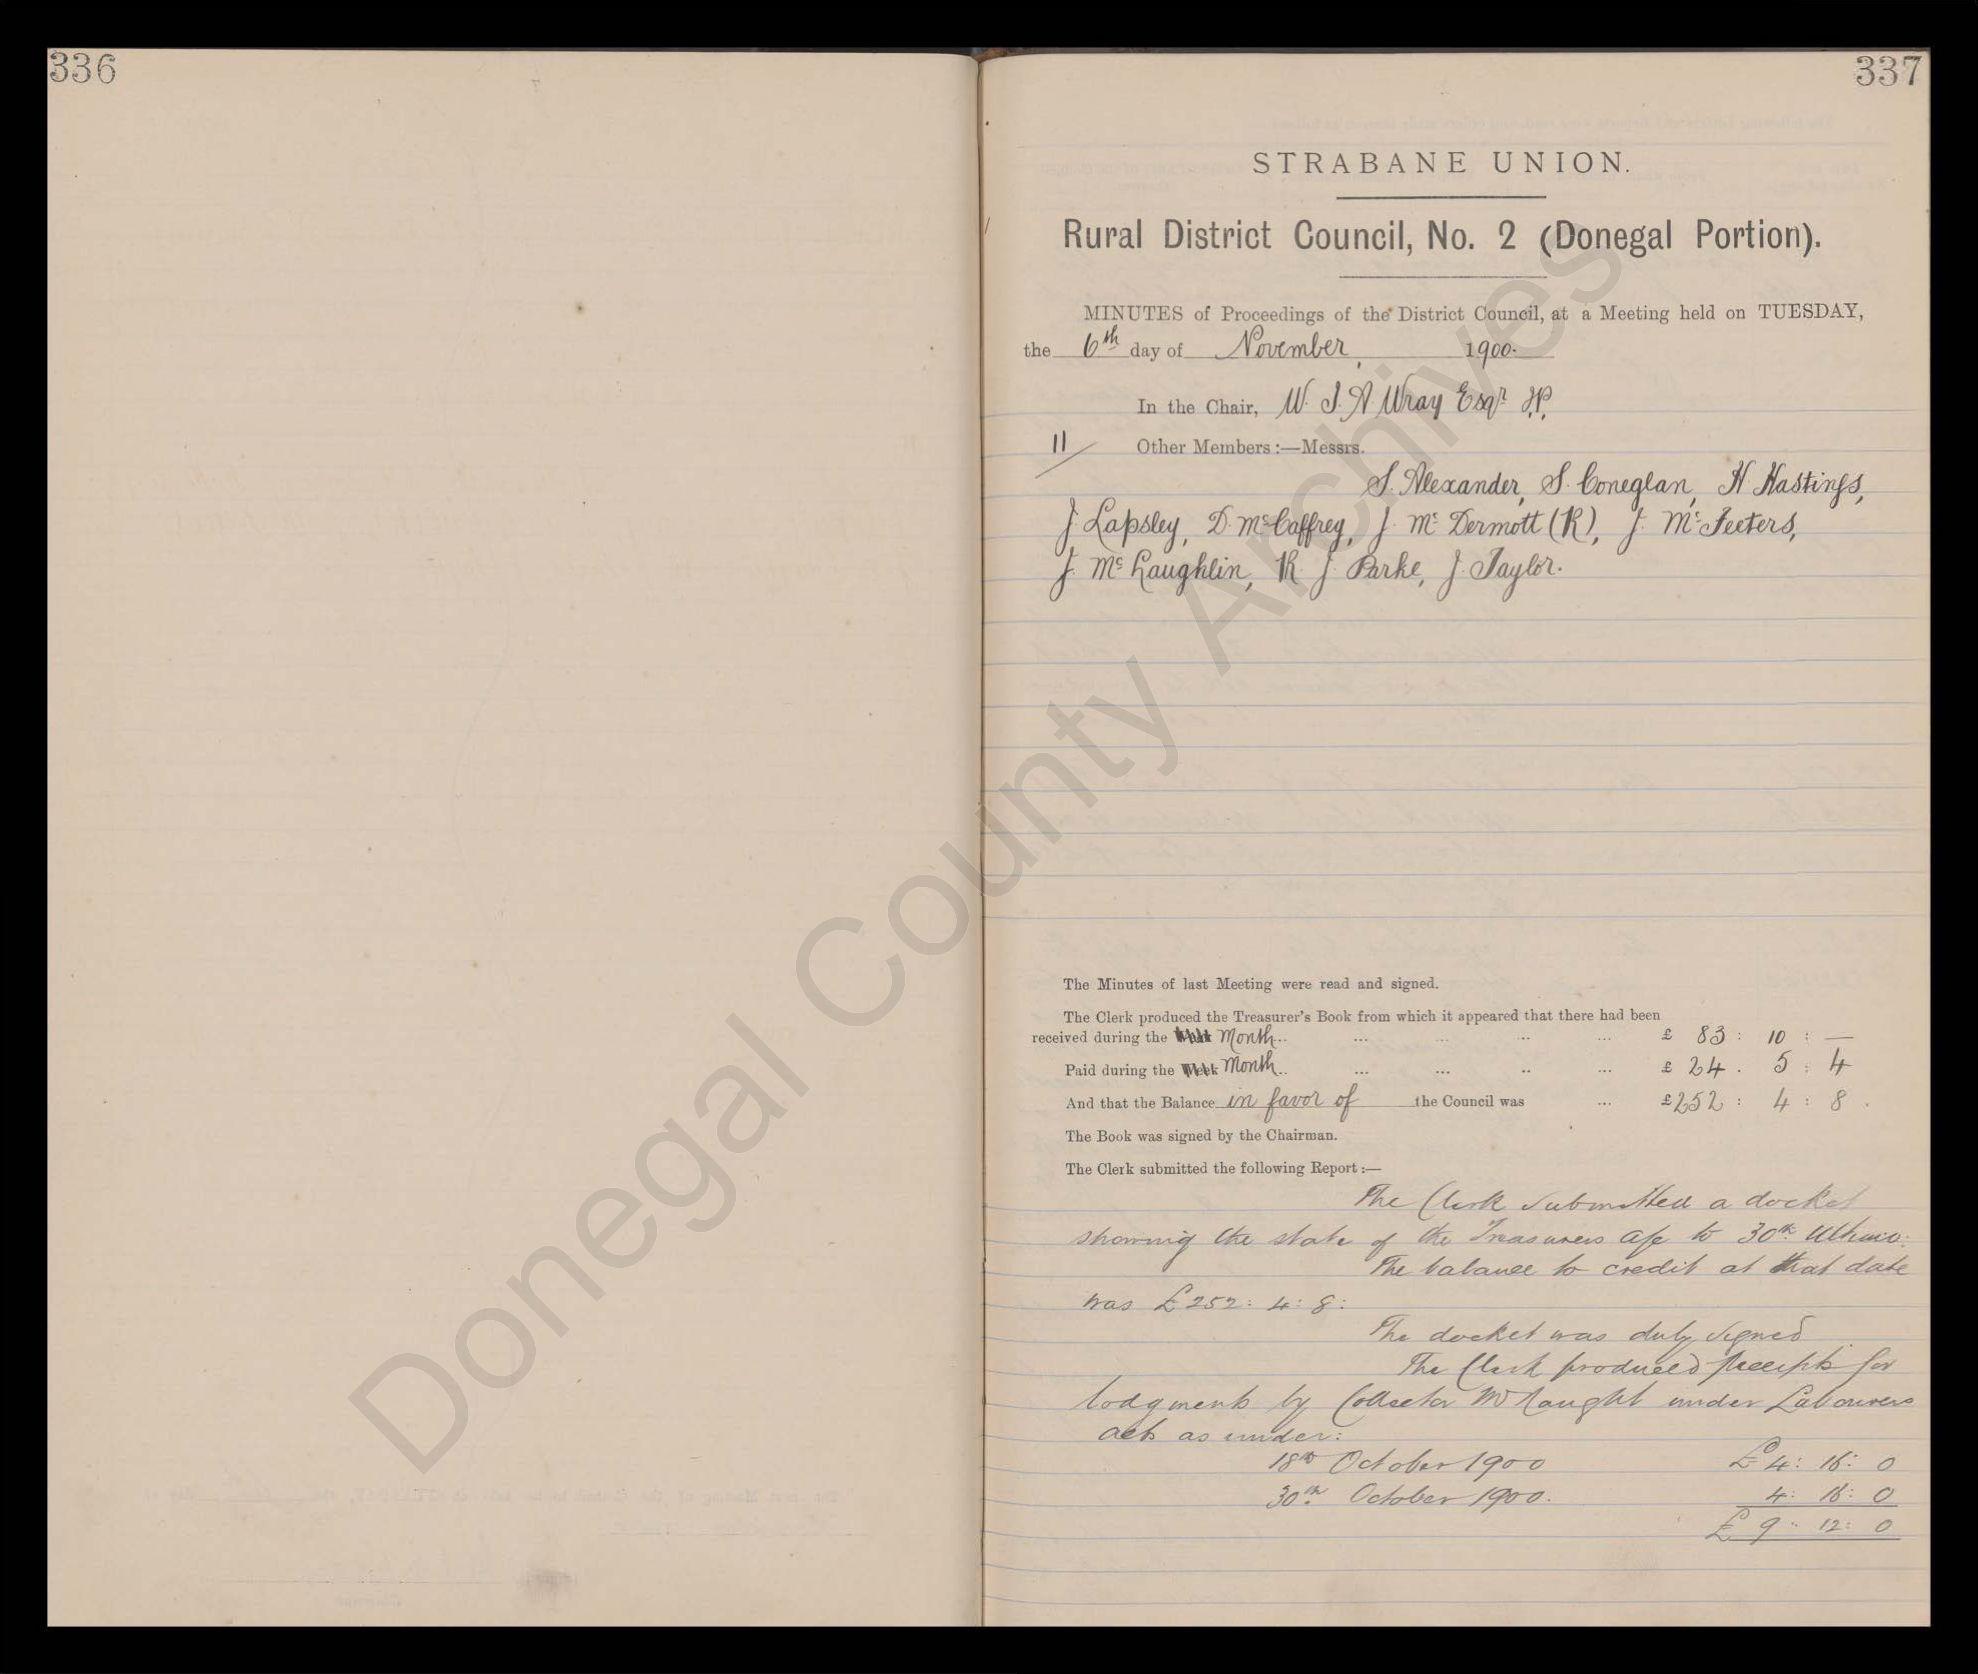 336
337
STRABANE UNION.
Rural District Council, No. 2 (Donegal Portion).
MINUTES of Proceedings of the District Council, at a Meeting held on TUESDAY,
the 6th day of November, 1900.
In the Chair, W. J. A Wray Esqr J.P.
11 Other Members :—Messrs.
S. Alexander, S. Coneglan, H. Hastings,
J. Lapsley, D. McCaffrey, J. McDermott (R), J. McFeeters,
J. McLaughlin, R. J. Parke, J. Taylor.
The Minutes of last Meeting were read and signed.
The Clerk produced the Treasurer's Book from which it appeared that there had been
received during the Week Month... ... ... ... ... £ 83 : 10 : —
Paid during the Week Month.. ... ... .. ... £ 24 . 5 : 4
And that the Balance in favor of the Council was ... £252 : 4 : 8 .
The Book was signed by the Chairman.
The Clerk submitted the following Report :—
The Clerk submitted a docket
showing the state of the Treasurers a/c to 30th Ultimo.
The balance to credit at that date
was £252: 4: 8:
The docket was duly signed
The Clerk produced receipts for
lodgments by Collector under Labourers
acts as under:
18th October 1900 £4: 16: 0
30th October 1900. 4: 16: 0
£ 9 " 12: 0
Donegal County Archives